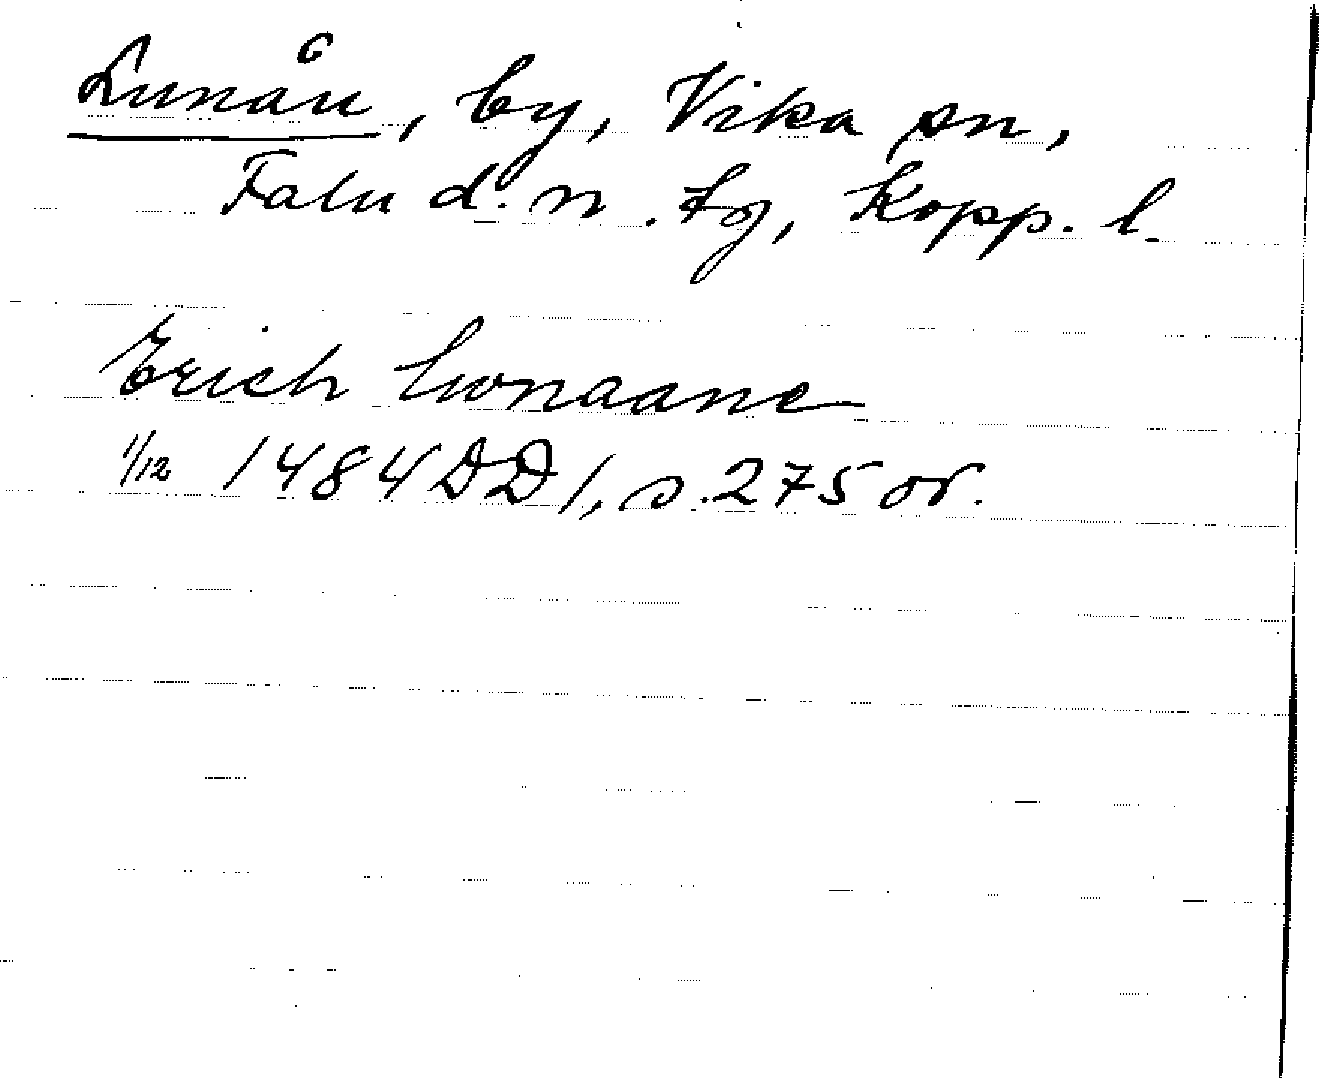 Lunån, by, Vika sn,
Falu d. n. tg, Kopp. l.
Erich lwnaane
1/12 1484 DD 1, s. 275 or.